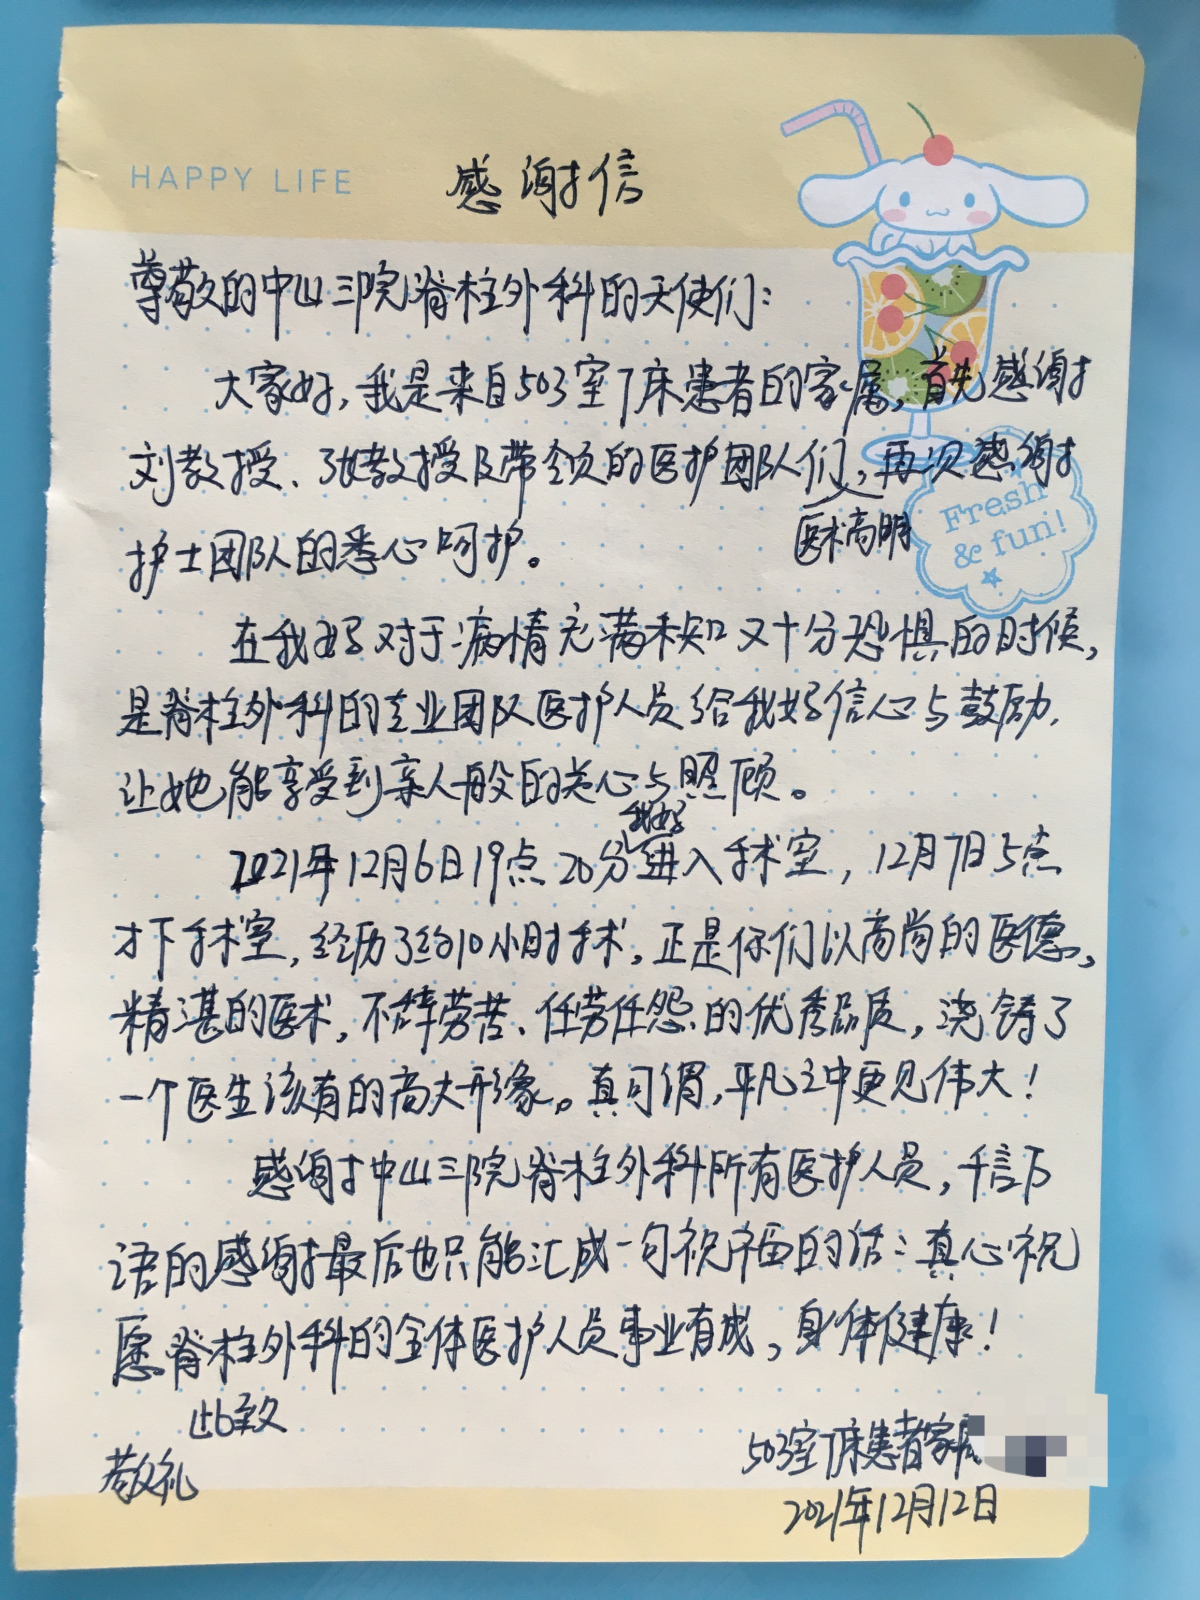 HAPPY LIFE
感谢信
尊敬的中山三院脊柱外科的天使们：
大家好，我是来自503室7床患者的家属，首先感谢
刘教授、张教授及带领的医护团队们，再次感谢
医术高明
Fresh
& fun!
护士团队的悉心呵护。
在我妈对于病情充满未知又十分恐惧的时候，
是脊柱外科的专业团队医护人员给我妈信心与鼓励，
让她能享受到亲人般的关心与照顾。
我妈
2021年12月6日19点20分进入手术室，12月7日5点
才下手术室，经历了约10小时手术，正是你们以高尚的医德、
精湛的医术，不辞劳苦、任劳任怨的优秀品质，浇铸了
一个医生该有的高大形象。真可谓，平凡之中更见伟大！
感谢中山三院脊柱外科所有医护人员，千言万
语的感谢最后也只能汇成一句祝福的话：真心祝
愿脊柱外科的全体医护人员事业有成，身体健康！
此致
敬礼
503室7床患者家属
2021年12月12日